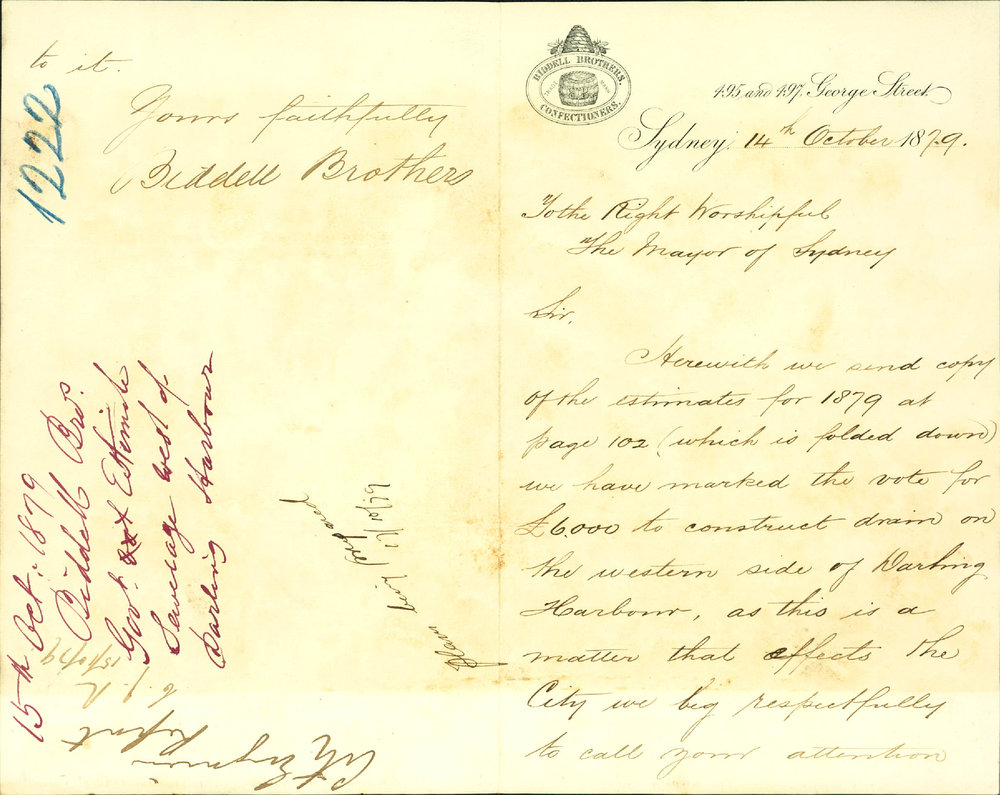 BIDDELL BROTHERS.
TRADE MARK
CONFECTIONERS.
495 and 497, George Street
Sydney, 14th October 1879.
To the Right Worshipful
The Mayor of Sydney
Sir,
Herewith we send copy
of the estimates for 1879 at
page 102 (which is folded down)
we have marked the vote for
£6.000 to construct drain on
the western side of Darling
Harbour, as this is a
matter that effects the
City we beg respectfully
to call your attention
to it.
Yours faithfully
Biddell Brothers
1222
15th Oct: 1879
Biddell Bros.
Govt. Estimate
Sewerage west of
Darling Harbour
City Engineer
Report
15/10/79
17/10/79